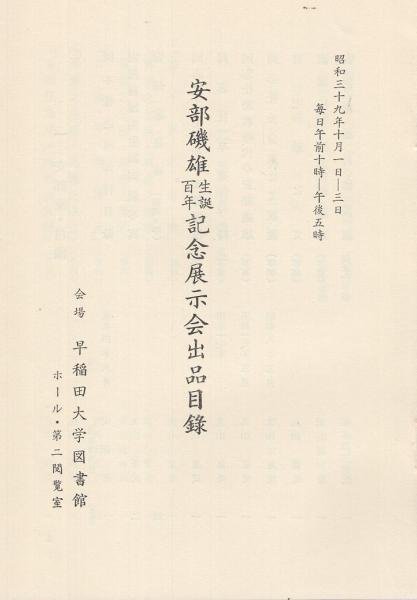 昭和三十九年十月一日―三日
毎日午前十時―午後五時
安部磯雄生誕百年記念展示会出品目錄
会場 早稲田大学図書館
ホール・第二閲覧室